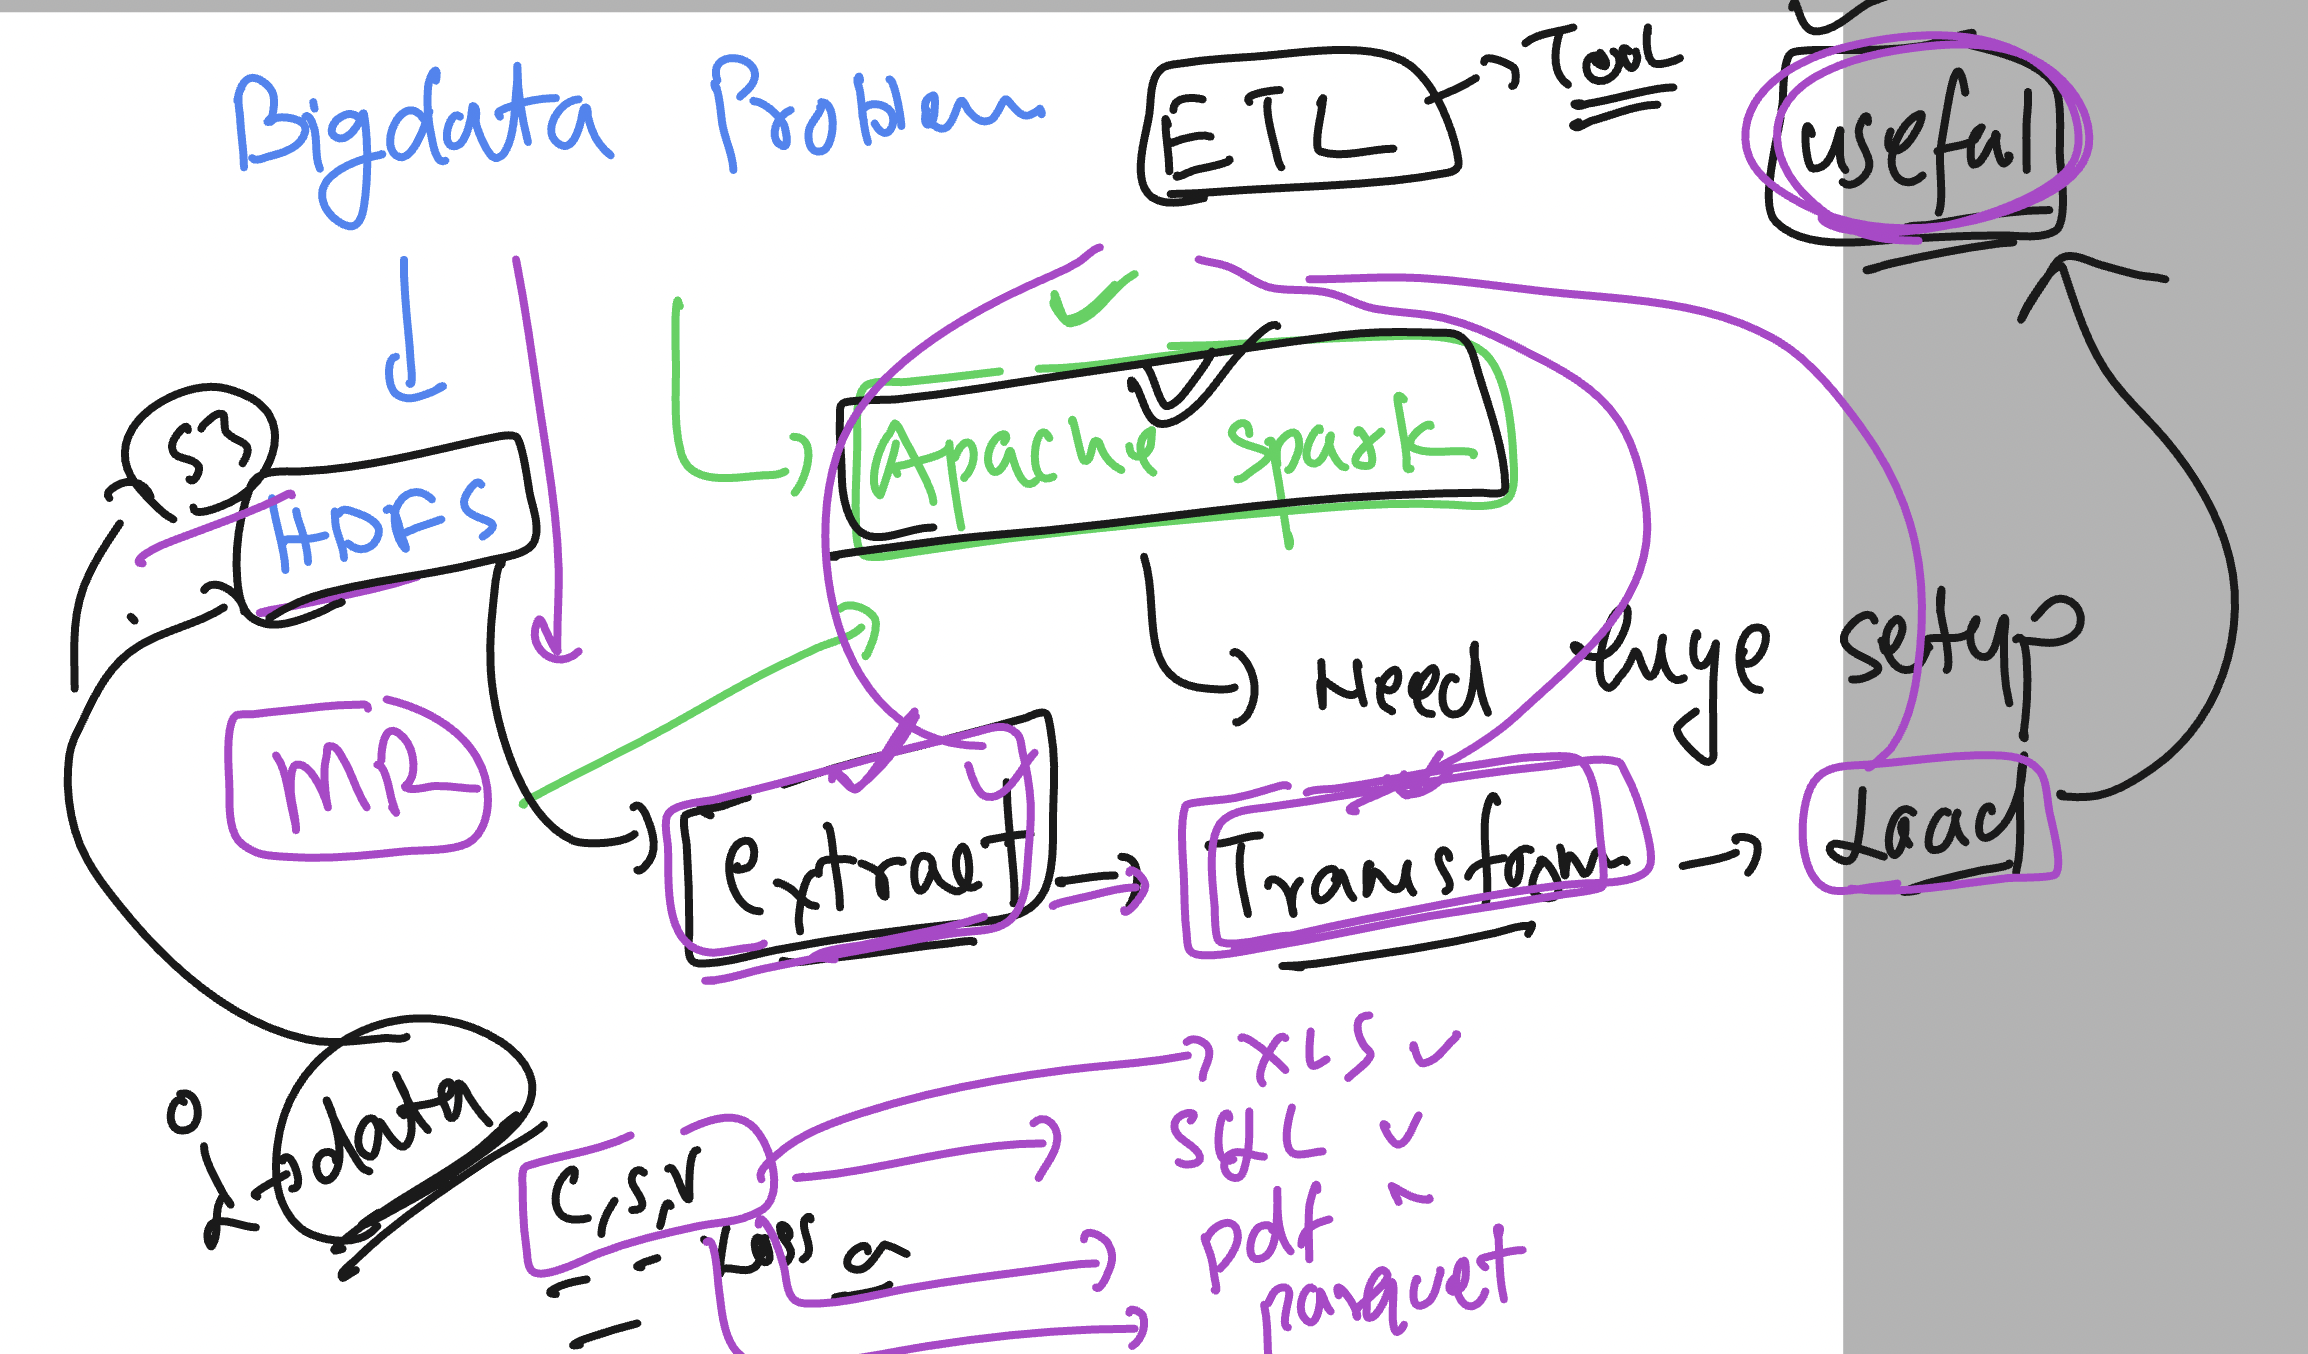 Bigdata Problem
ETL → Tool
useful
Apache Spark
S3
HDFS
Need huge setup
MR
Extract → Transform → Load
data
C,S,V
XLS ✓
SQL ✓
pdf
parquet